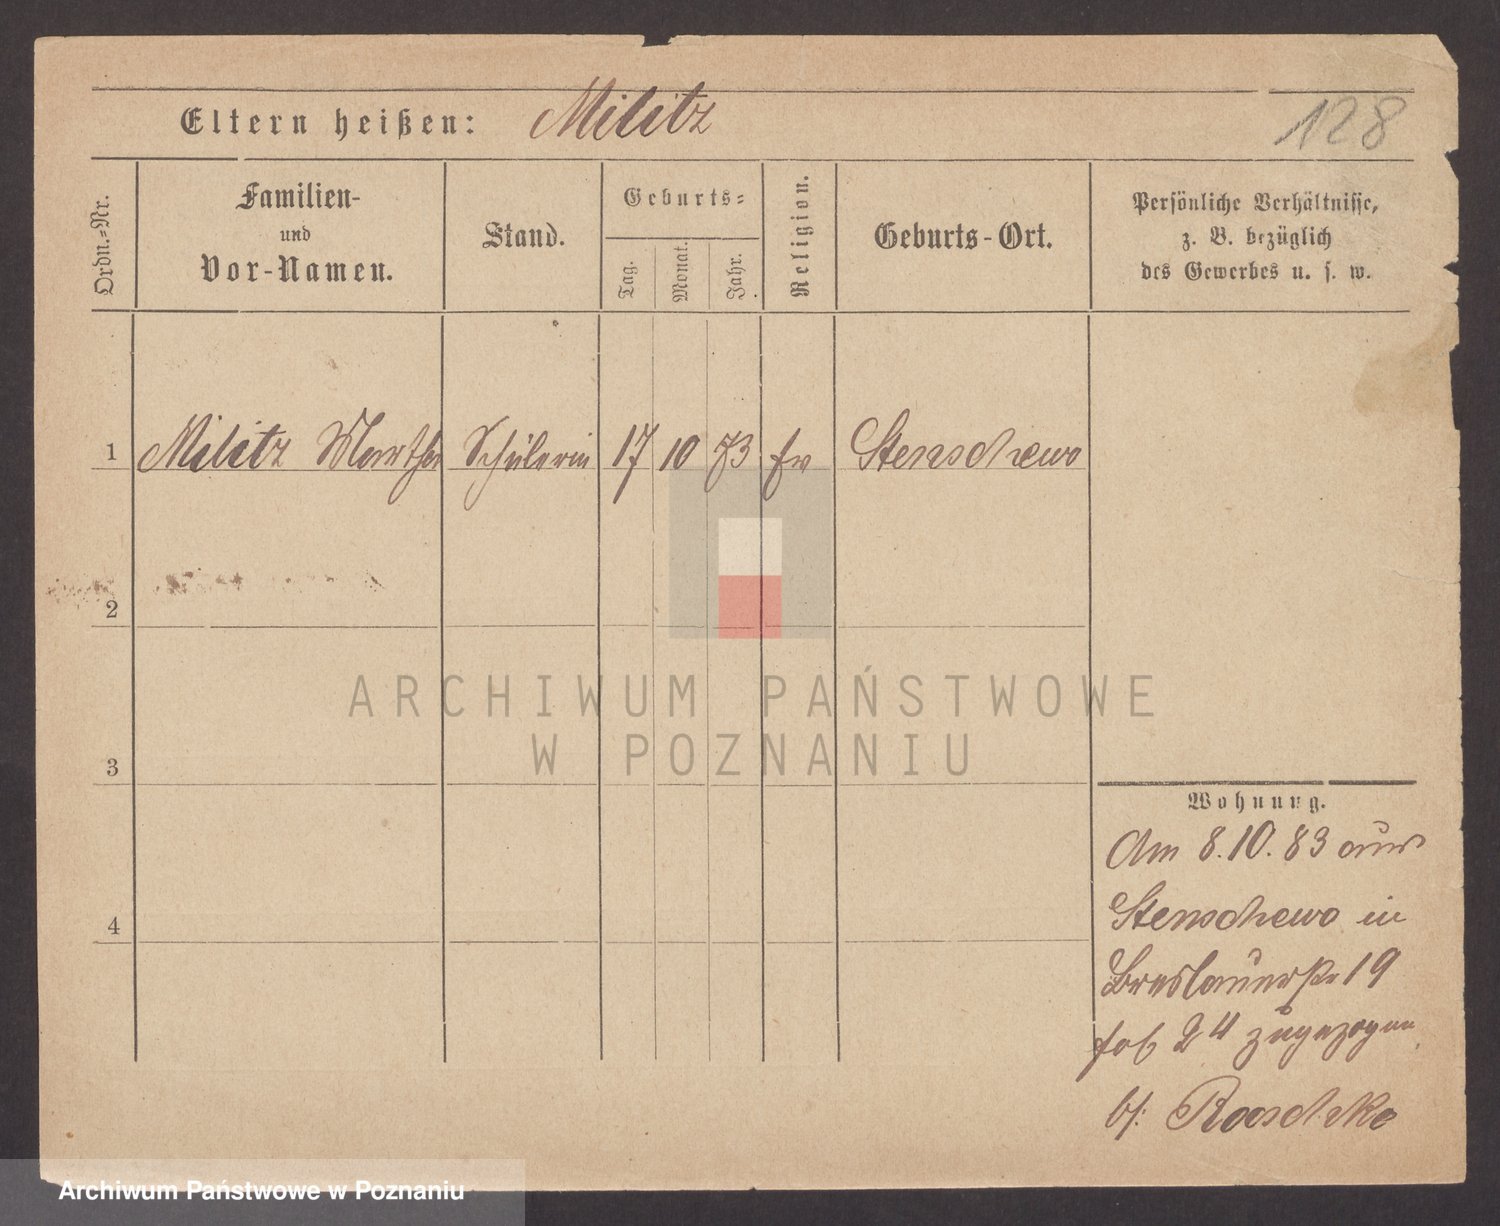 Eltern heißen: Militz
128
Ordn.-Nr.
Familien-
und
Vor-Namen.
Stand.
Geburts-
Tag.
Monat.
Jahr.
Religion.
Geburts-Ort.
Persönliche Verhältnisse,
z. B. bezüglich
des Gewerbes u. s. w.
1 Militz Martha Schülerin 17 10 73 ev Stenschewo
2
3
4
Wohnung.
Am 8.10.83 aus
Stenschewo in
Breslauerstr 19
24 zugezogen
b/: Raschke
ARCHIWUM PAŃSTWOWE
W POZNANIU
Archiwum Państwowe w Poznaniu